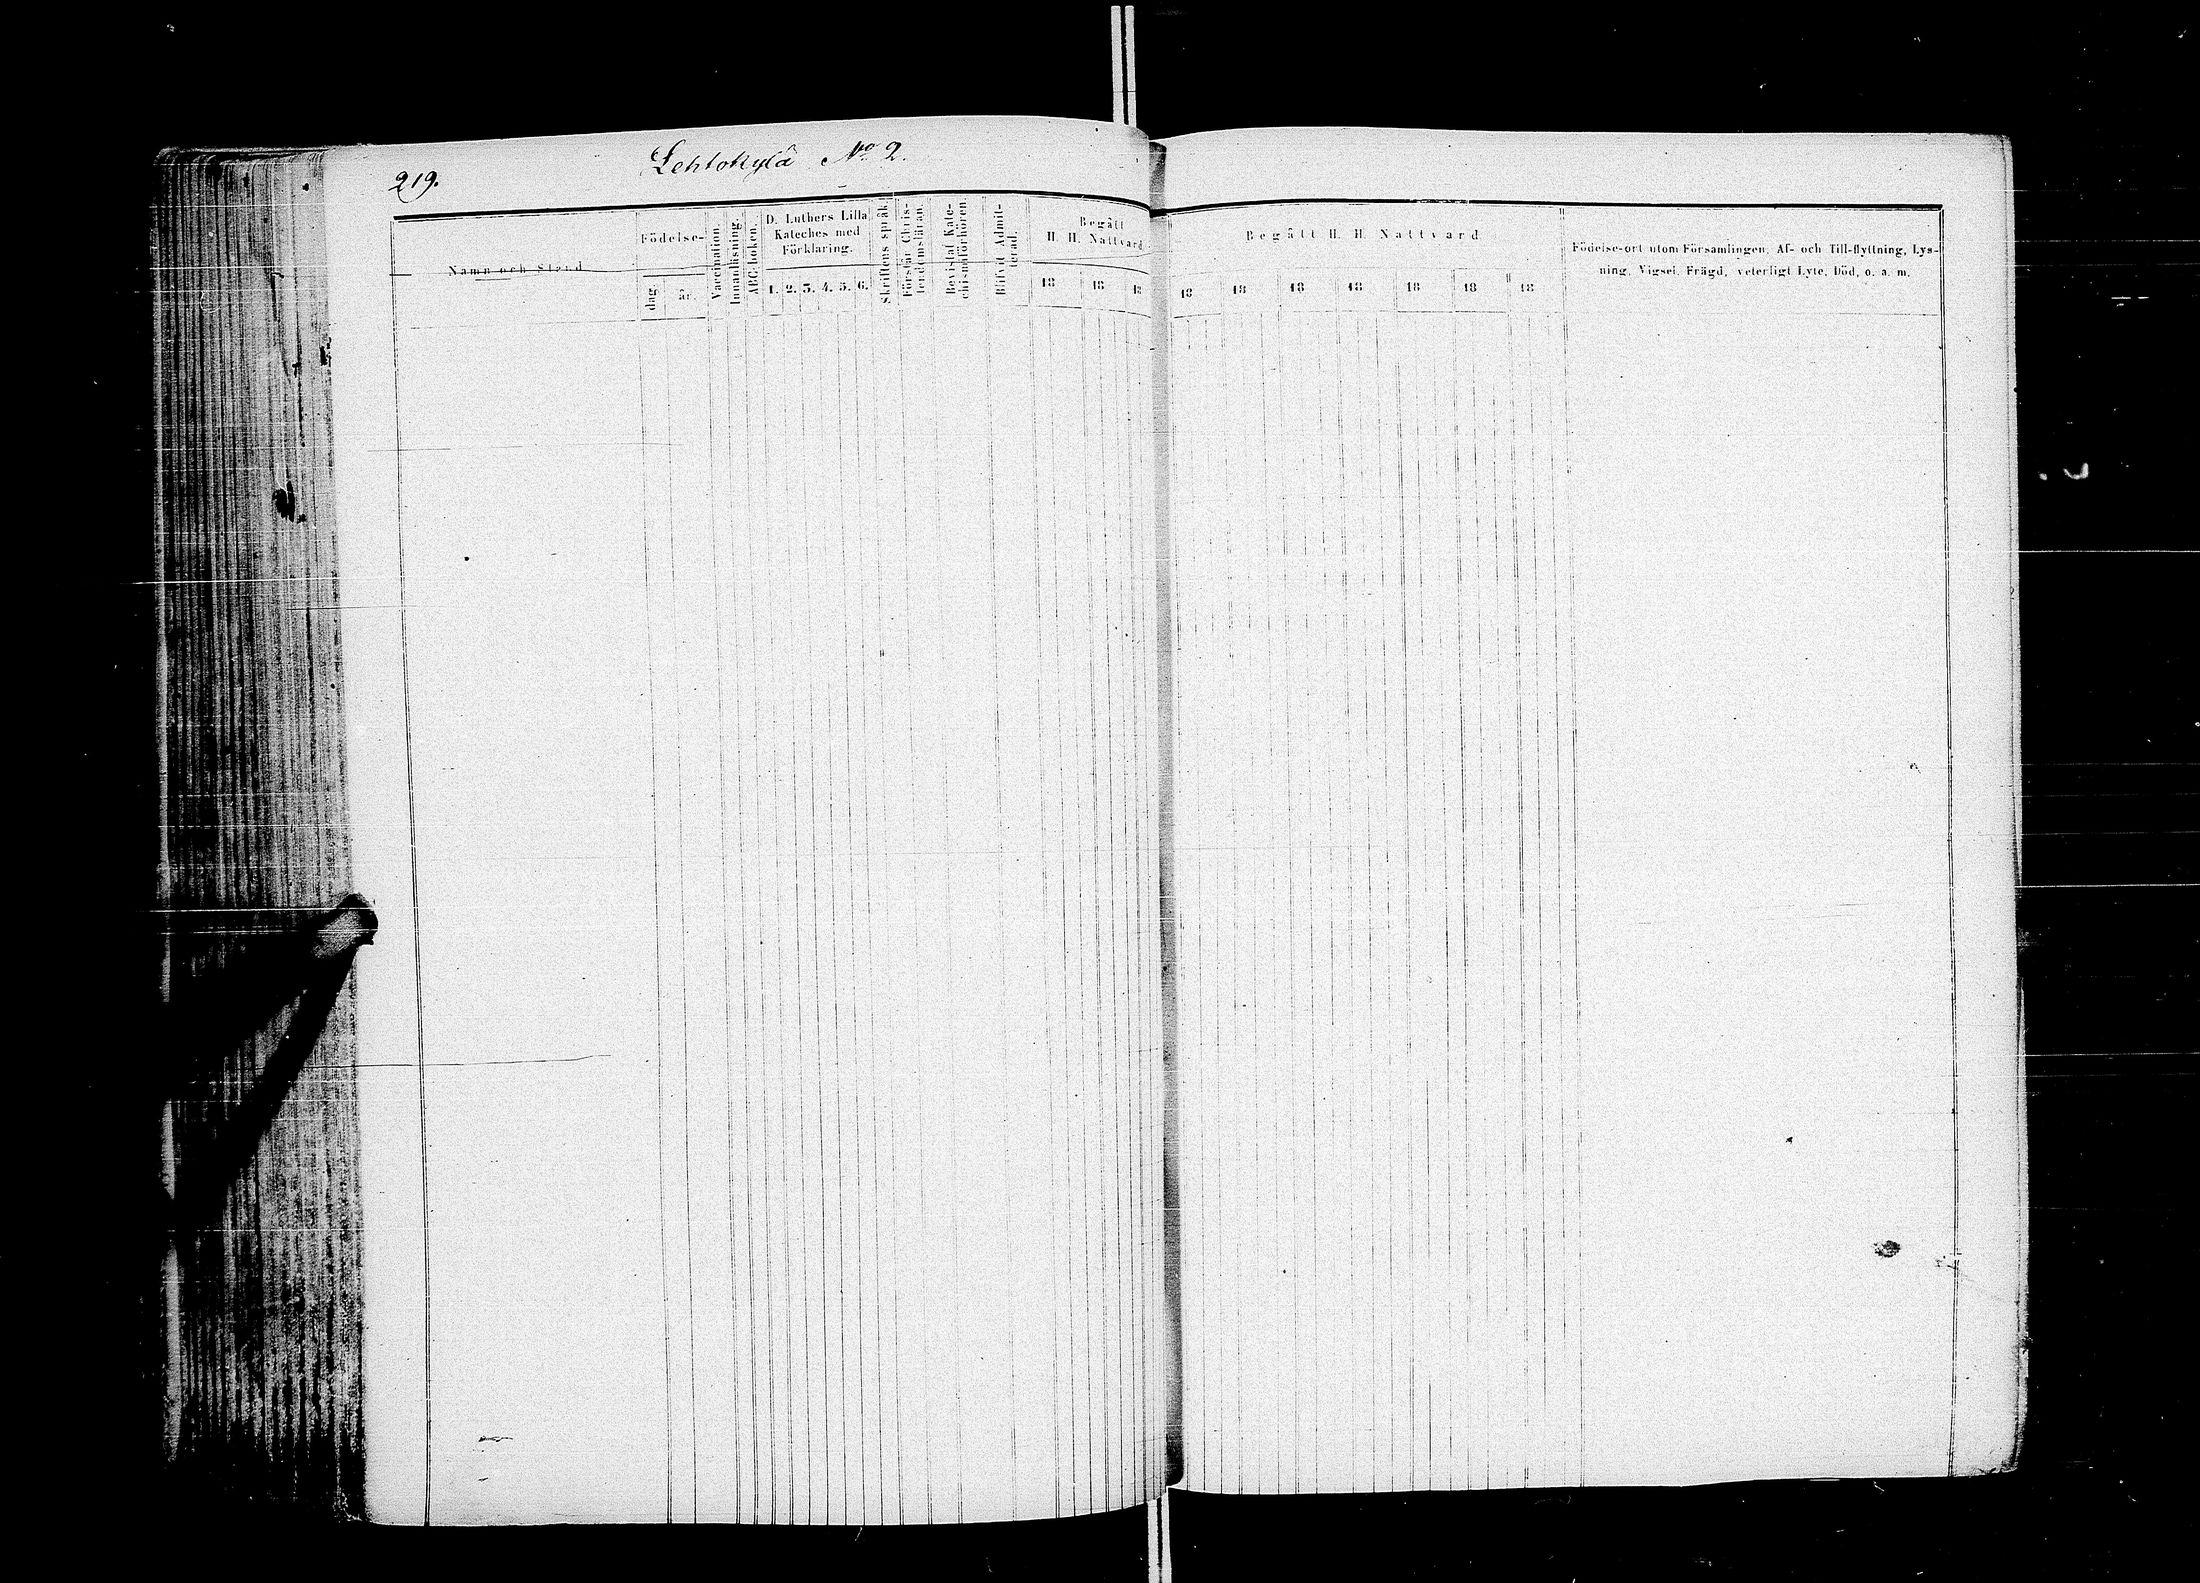 219.
Lehtokylä No 2.
Namn och Stånd
Födelse-
dag.
år.
Vaccination.
Innanläsning.
ABC-boken.
D. Luthers Lilla
Kateches med
Förklaring.
1. 2. 3. 4. 5. 6.
Skriftens språk.
Förstår Chris-
tendomsläran.
Bevistat Kate-
chismiförhören.
Blifvit Admit-
terad.
Begått
H. H. Nattvard.
18 18 18
Begått H. H. Nattvard
18 18 18 18 18 18 18
Födelse-ort utom Församlingen, Af- och Till-flyttning, Lys-
ning, Vigsel, Frägd, veterligt Lyte, Död, o. a. m.